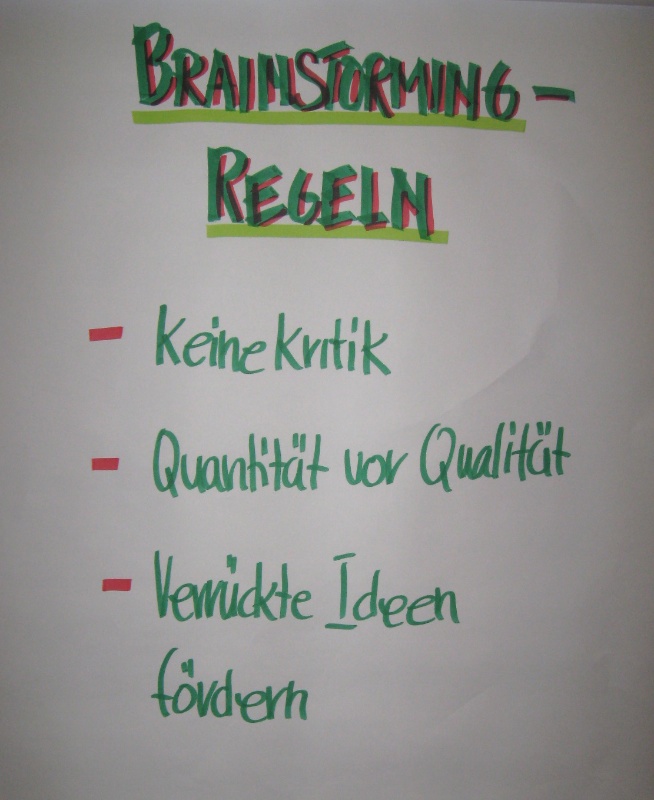 BRAINSTORMING-
REGELN
- Keine Kritik
- Quantität vor Qualität
- Verrückte Ideen
fördern